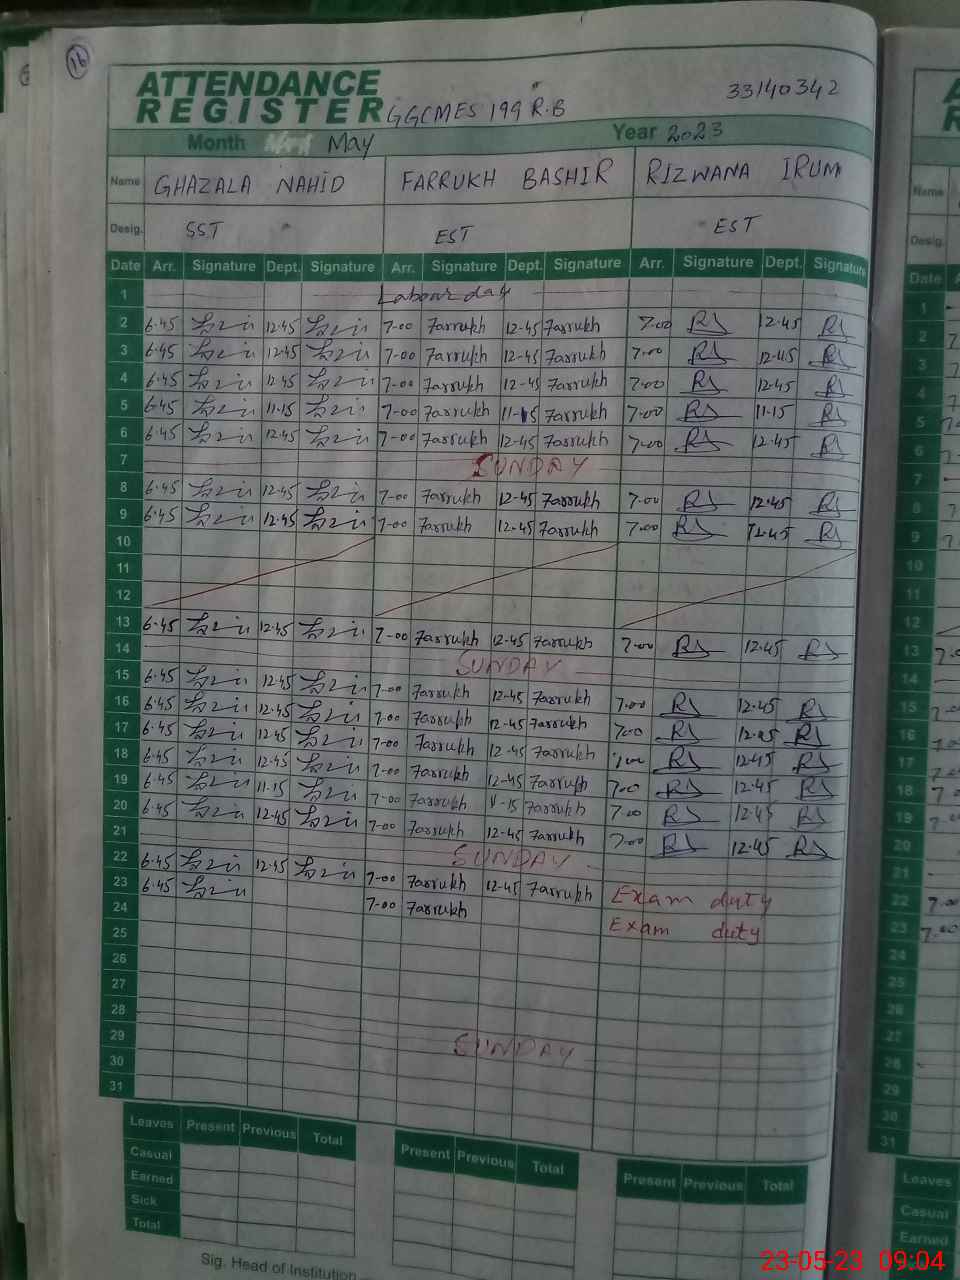 16
ATTENDANCE
REGISTER GGCMES 199 R.B 33140342
Month May Year 2023
Name GHAZALA NAHID FARRUKH BASHIR RIZWANA IRUM
Desig. SST EST EST
Date Arr. Signature Dept. Signature Arr. Signature Dept. Signature Arr. Signature Dept. Signature
1 Labour day
2 6.45 12.45 7-00 Farrukh 12-45 Farrukh 7.00 RJ 12.45 RJ
3 6.45 12.45 7-00 Farrukh 12-45 Farrukh 7.00 RJ 12.45 RJ
4 6.45 12.45 7-00 Farrukh 12-45 Farrukh 7.00 RJ 12.45 RJ
5 6.45 11.15 7-00 Farrukh 11-15 Farrukh 7.00 RJ 11.15 RJ
6 6.45 12.45 7-00 Farrukh 12-45 Farrukh 7.00 RJ 12.45 RJ
7 SUNDAY
8 6.45 12.45 7-00 Farrukh 12-45 Farrukh 7.00 RJ 12.45 RJ
9 6.45 12.45 7-00 Farrukh 12-45 Farrukh 7.00 RJ 12.45 RJ
10
11
12
13 6.45 12.45 7-00 Farrukh 12-45 Farrukh 7.00 RJ 12.45 RJ
14 SUNDAY
15 6.45 12.45 7-00 Farrukh 12-45 Farrukh 7.00 RJ 12.45 RJ
16 6.45 12.45 7-00 Farrukh 12-45 Farrukh 7.00 RJ 12.45 RJ
17 6.45 12.45 7-00 Farrukh 12-45 Farrukh RJ 12.45 RJ
18 6.45 12.45 7-00 Farrukh 12-45 Farrukh 7.00 RJ 12.45 RJ
19 6.45 11.15 7-00 Farrukh 11-15 Farrukh 7.00 RJ 12.45 RJ
20 6.45 12.45 7-00 Farrukh 12-45 Farrukh 7.00 RJ 12.45 RJ
21 SUNDAY
22 6.45 12.45 7-00 Farrukh 12-45 Farrukh Exam duty
23 6.45 7-00 Farrukh Exam duty
24
25
26
27
28 SUNDAY
29
30
31
Leaves Present Previous Total Present Previous Total Present Previous Total
Casual
Earned
Sick
Total
Sig. Head of Institution
Name
Desig.
Date
1
2
3
4
5
6
7
8
9
10
11
12
13
14
15
16
17
18
19
20
21
22 7.00
23 7.00
24
25
26
27
28
29
30
31
Leaves
Casual
Earned
23-05-23 09:04